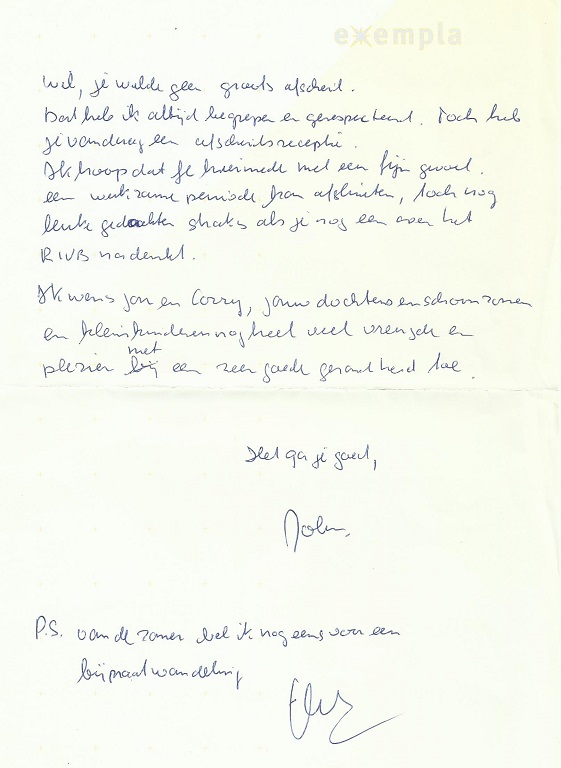 exempla
Wil, je wilde geen groots afscheid.
Dat heb ik altijd begrepen en gerespecteerd. Toch heb
je vandaag een afscheidsreceptie.
Ik hoop dat je hiermede met een fijn gevoel
een werkzame periode kan afsluiten, toch nog
leuke gedachten straks als je nog een over het
RIVB nadenkt.
Ik wens jou en Corry, jouw dochters en schoonzonen
en kleinkinderen nog heel veel vreugde en
plezier met een zeer goede gezondheid toe.
Het ga je goed,
P.S. van de zomer bel ik nog eens voor een
bijpraatwandeling